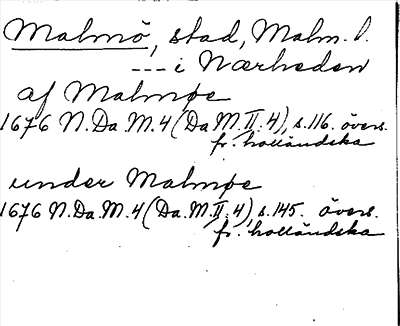 Malmö, stad, Malm. l.
--- i Nærheden
af Malmøe
1676 N.Da.M.4 (Da M. II. 4), s.116. övers.
fr. holländska
under Malmøe
1676 N.Da.M.4 (Da.M. II. 4), s.145. övers.
fr. holländska